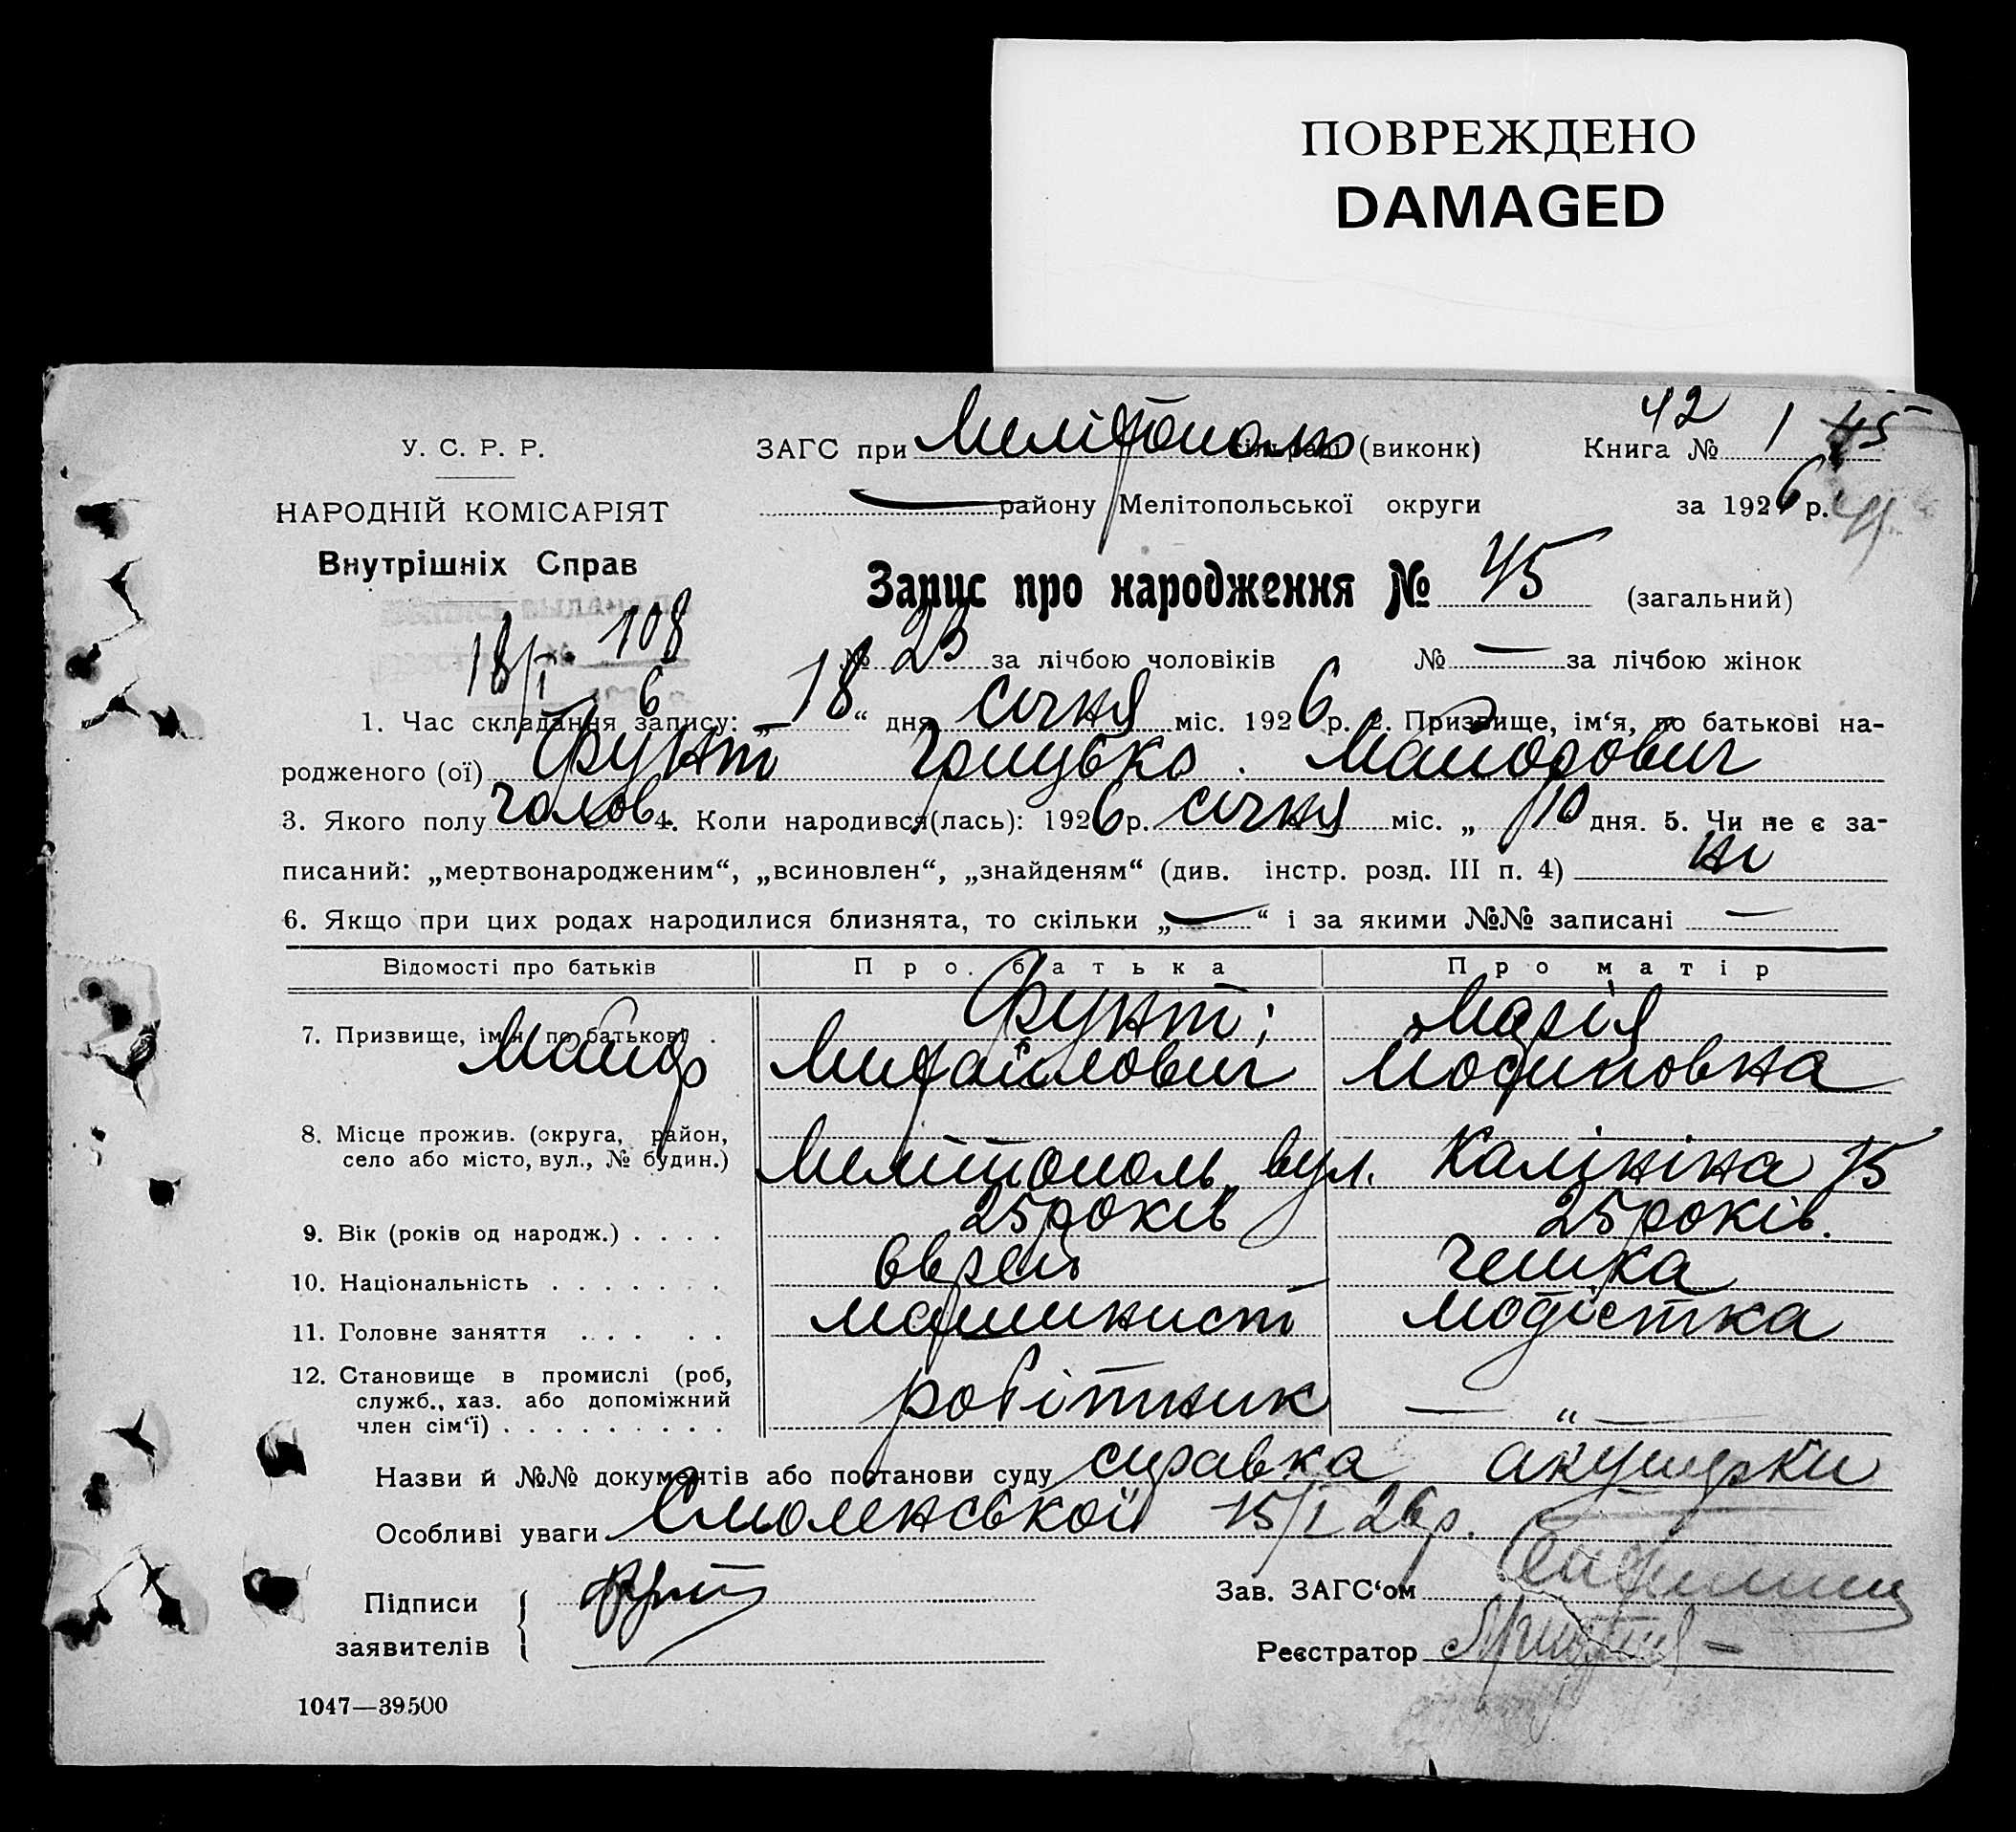 ПОВРЕЖДЕНО
DAMAGED
42
У. С. Р. Р.
ЗАГС при Мелітополь (виконк) Книга № 1 45
НАРОДНІЙ КОМІСАРІЯТ
району Мелітопольської округи за 1926 р.
Внутрішніх Справ
Запис про народження № 45 (загальний)
18/I 108
6
№ 23 за лічбою чоловіків № — за лічбою жінок
1. Час складання запису: „ 18 “ дня січня міс. 1926 р. 2. Призвище, ім‘я, по батькові на-
родженого (ої) Фунт Майорович
3. Якого полу чолов. 4. Коли народився(лась): 1926 р. січня міс. „ 10 дня. 5. Чи не є за-
писаний: „мертвонародженим“, „всиновлен“, „знайденям“ (див. інстр. розд. III п. 4) ні
6. Якщо при цих родах народилися близнята, то скільки „ — “ і за якими №№ записані —
Відомості про батьків Про батька Про матір
7. Призвище, ім‘я, по батькові . Фунт; Марія
Майор Михайлович Йосиповна
8. Місце прожив. (округа, район,
село або місто, вул., № будин.) Мелітополь, вул. Калініна 75
9. Вік (років од народж.) . . . . 25 років 25 років.
10. Національність . . . . . . . Єврей чешка
11. Головне заняття . . . . . машинист модістка
12. Становище в промислі (роб,
служб., хаз. або допоміжний робітник — „ —
член сім‘ї) . . . . . . . . .
Назви й №№ документів або постанови суду справка акушерки
Особливі уваги Смоленської 15/I 26 р.
Підписи
заявителів
Зав. ЗАГС‘ом
Реєстратор
1047—39500